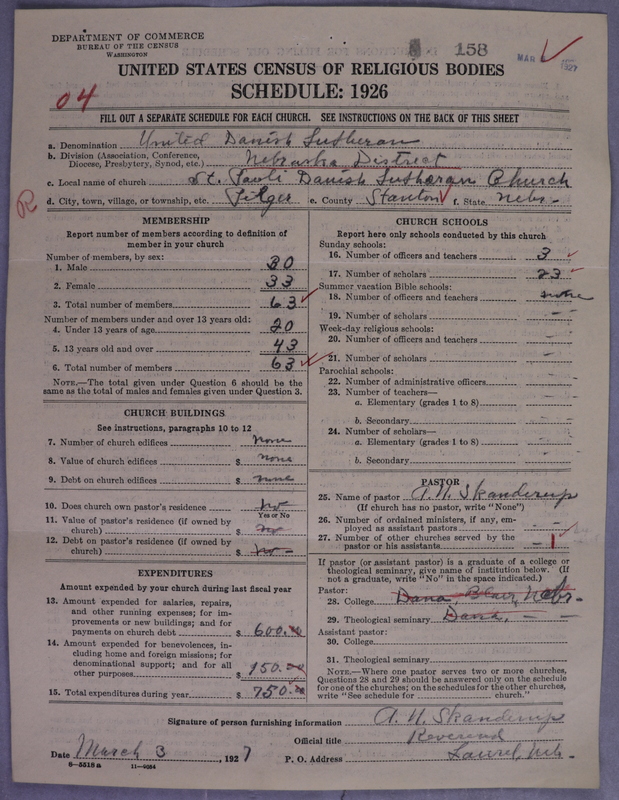 DEPARTMENT OF COMMERCE
BUREAU OF THE CENSUS
WASHINGTON
158
MAR 1927
UNITED STATES CENSUS OF RELIGIOUS BODIES
SCHEDULE: 1926
04
FILL OUT A SEPARATE SCHEDULE FOR EACH CHURCH. SEE INSTRUCTIONS ON THE BACK OF THIS SHEET
a. Denomination United Danish Lutheran
b. Division (Association, Conference, Diocese, Presbytery, Synod, etc.) Nebraska District
c. Local name of church St. Pauli Danish Lutheran Church
d. City, town, village, or township, etc. Pilger e. County Stanton f. State Nebr.
R
MEMBERSHIP
Report number of members according to definition of
member in your church
Number of members, by sex:
1. Male 30
2. Female 33
3. Total number of members 63
Number of members under and over 13 years old:
4. Under 13 years of age 20
5. 13 years old and over 43
6. Total number of members 63
NOTE.—The total given under Question 6 should be
same as the total of males and females given under Question 3.
CHURCH BUILDINGS
See instructions, paragraphs 10 to 12
7. Number of church edifices none
8. Value of church edifices $ none
9. Debt on church edifices $ none
10. Does church own pastor's residence no
Yes or No
11. Value of pastor's residence (if owned by
church) $ no
12. Debt on pastor's residence (if owned by
church) $ no
EXPENDITURES
Amount expended by your church during last fiscal year
13. Amount expended for salaries, repairs,
and other running expenses; for im-
provements or new buildings; and for
payments on church debt $ 600.00
14. Amount expended for benevolences, in-
cluding home and foreign missions; for
denominational support; and for all
other purposes $ 150.00
15. Total expenditures during year $ 750.00
CHURCH SCHOOLS
Report here only schools conducted by this church
Sunday schools:
16. Number of officers and teachers 3
17. Number of scholars 23
Summer vacation Bible schools:
18. Number of officers and teachers none
19. Number of scholars
Week-day religious schools:
20. Number of officers and teachers
21. Number of scholars
Parochial schools:
22. Number of administrative officers
23. Number of teachers—
a. Elementary (grades 1 to 8)
b. Secondary
24. Number of scholars—
a. Elementary (grades 1 to 8)
b. Secondary
PASTOR
25. Name of pastor A. N. Skanderup
(If church has no pastor, write "None")
26. Number of ordained ministers, if any, em-
ployed as assistant pastors
27. Number of other churches served by the
pastor or his assistants 1
If pastor (or assistant pastor) is a graduate of a college or
theological seminary, give name of institution below. (If
not a graduate, write "No" in the space indicated.)
Pastor:
28. College Dana Blair, Nebr.
29. Theological seminary Dana,
Assistant pastor:
30. College
31. Theological seminary
NOTE.—Where one pastor serves two or more churches,
Questions 28 and 29 should be answered only on the schedule
for one of the churches; on the schedules for the other churches,
write "See schedule for church."
Signature of person furnishing information A. N. Skanderup
Official title Reverend
Date March 3, 1927 P. O. Address Laurel, Neb.
8—5518a 11—9064